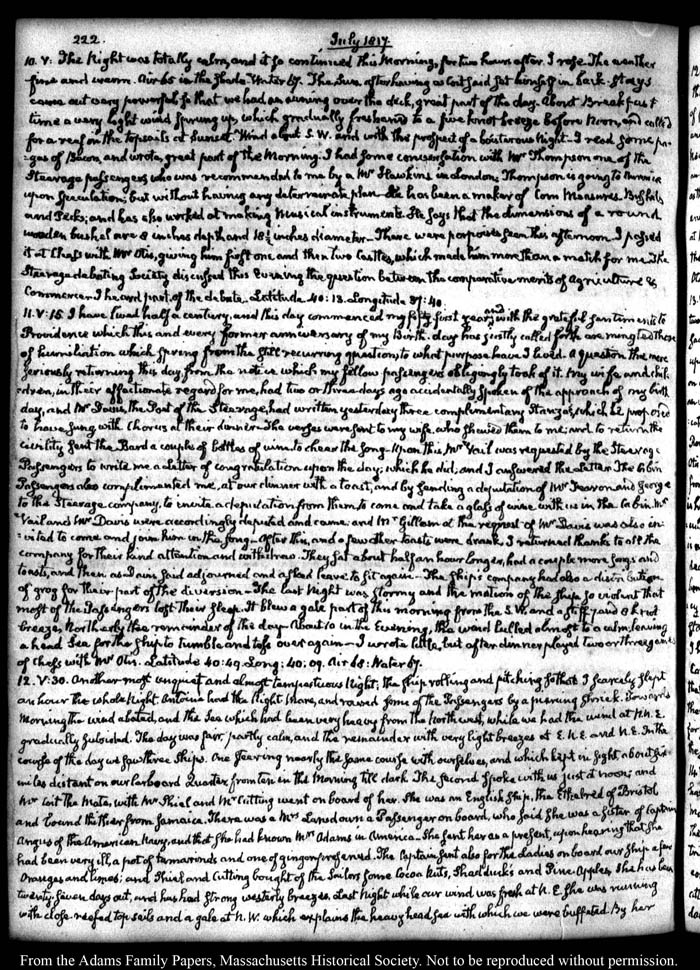 222. July 1817.
10. V: The Night was totally calm, and it so continued this Morning, for two hours after I rose. The weather
fine and warm. Air 65 in the shade. Water 67. The Sun after having as Cot said set himself in back-stays
came out very powerful, so that we had an awning over the deck, great part of the day. About Breakfast
time a very light wind sprung up, which gradually freshened to a five knot breeze before Noon, and called
for a reef in the topsails at sunset. Wind about S.W. and with the prospect of a boisterous Night. I read some pa-
-ges of Bacon, and wrote, great part of the Morning. I had some conversation with Mr Thompson one of the
Steerage passengers who was recommended to me by a Mr Hawkins in London. Thompson is going to America
upon speculation; but without having any determinate plan. He has been a maker of Corn Measures. Bushels
and Pecks; and has also worked at making Musical instruments. He says that the dimensions of a round
wooden bushel are 8 inches depth and 18½ inches diameter. There were porpoises seen this afternoon. I played
it at Chess with Mr Otis, giving him first one and then two Castles, which made him more than a match for me. The
Steerage debating Society discussed this Evening the question between the comparative merits of Agriculture &
Commerce. I heard part of the debate. Latitude 40:13. Longitude 37:40.
11. V:15. I have lived half a century, and this day commenced my fifty first year; and with the grateful sentiments to
Providence which this and every former anniversary of my Birth-day has justly called forth are mingled those
of humiliation which spring from the still recurring question, to what purpose have I lived. A question the more
seriously returning this day, from the notice which my fellow passengers obligingly took of it. My wife and chil-
-dren, in their affectionate regard for me, had two or three days ago accidentally spoken of the approach of my birth
day, and Mr Davis, the Poet of the Steerage, had written yesterday three complimentary Stanzas, which he proposed
to have sung with Chorus at their dinner. The verses were sent to my wife, who shewed them to me; and to return the
civility sent the Bard a couple of bottles of wine to cheer the song. Upon this Mr Vail was requested by the Steerage
Passengers to write me a letter of congratulation upon the day; which he did, and I answered the letter. The Cabin
Passengers also complimented me, at our dinner with a toast, and by sending a deputation of Mr Fearon and George
to the Steerage company, to invite a deputation from them to come and take a glass of wine with us in the Cabin. Mr
Vail and Mr Davis were accordingly deputed and came, and Mr Gillam at the request of Mr Davis was also in-
-vited to come and join him in the song. After this, and a few other toasts were drank, I returned thanks to all the
company for their kind attention and withdrew. They sat about half an hour longer, had a couple more songs and
toasts, and then as Davis said adjourned and asked leave to sit again. The Ship's company had also a distribution
of grog for their part of the diversion. The last Night was stormy and the motion of the Ship so violent that
most of the Passengers lost their sleep. It blew a gale part of this morning from the S.W. and a stiff and 8 knot
breeze, Northerly the remainder of the day. About 10 in the Evening, the wind lulled almost to a calm, leaving
a head Sea for the ship to tumble and toss over again. I wrote little, but after dinner played two or three games
of chess with Mr Otis. Latitude 40:49. Long: 40:09. Air 68: Water 67.
12. V:30. Another most unquiet and almost tempestuous Night; the ship rolling and pitching so that I scarcely slept
an hour the whole Night. Antoine had the Night Mare, and roused some of the Passengers by a piercing shriek. Towards
Morning the wind abated, and the Sea which had been very heavy from the North west, while we had the wind at N.E.
gradually subsided. The day was fair, partly calm, and the remainder with very light breezes at E.N.E. and N.E. In the
course of the day we saw three Ships. One steering nearly the same course with ourselves, and which kept in sight about six
miles distant on our larboard Quarter from ten in the Morning till dark. The second spoke with us just at noon; and
Mr Coit the Mate, with Mr Shiel and Mr Cutting went on board of her. She was an English Ship, the Ethelred of Bristol
and bound thither from Jamaica. There was a Mrs Lansdown a Passenger on board, who said she was a sister of Captain
Angus of the American Navy, and that she had known Mrs Adams in America. She sent her as a present, upon hearing that she
had been very ill, a pot of tamarinds and one of ginger preserved. The Captain sent also for the Ladies on board our Ship a few
Oranges and limes; and Shiel and Cutting bought of the Sailors some Cocoa Nuts, Shadducks and Pine-Apples. She has been
twenty seven days out, and has had strong westerly breezes. Last Night while our wind was fresh at N.E. she was running
with close-reefed top sails and a gale at N.W. which explains the heavy head sea with which we were buffeted. By her
From the Adams Family Papers, Massachusetts Historical Society. Not to be reproduced without permission.